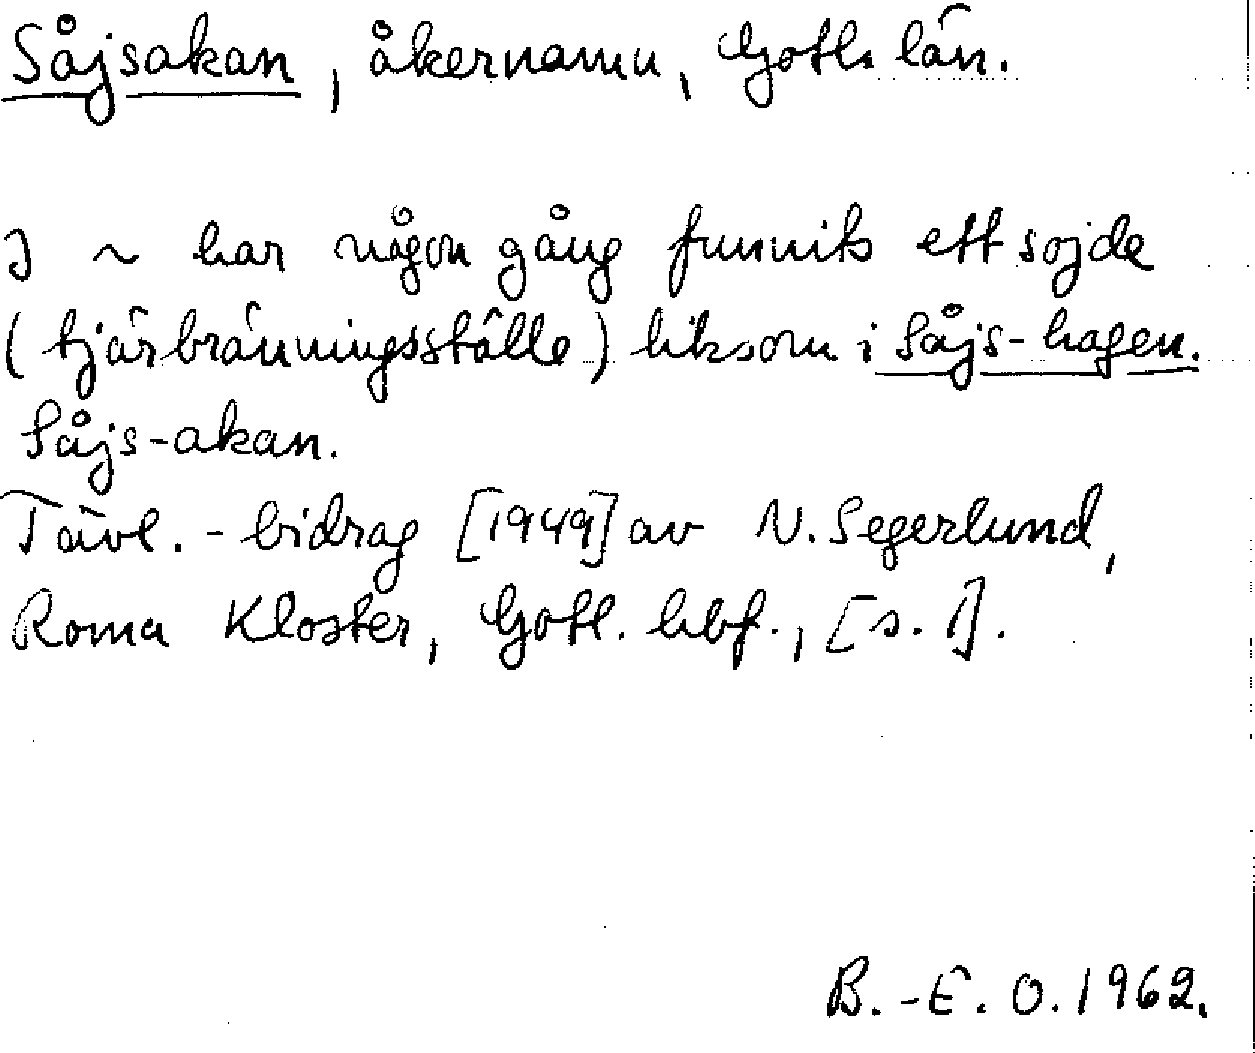 Såjsakan, åkernamn, Gotl. län.
I ~ har någon gång funnits ett sojde
(tjärbränningsställe) liksom i Såjs-hagen.
Såjs-akan.
Tävl.-bidrag [1949] av N. Segerlund,
Roma Kloster, Gotl. hbf., [s. 1].
B.-E. O. 1962.